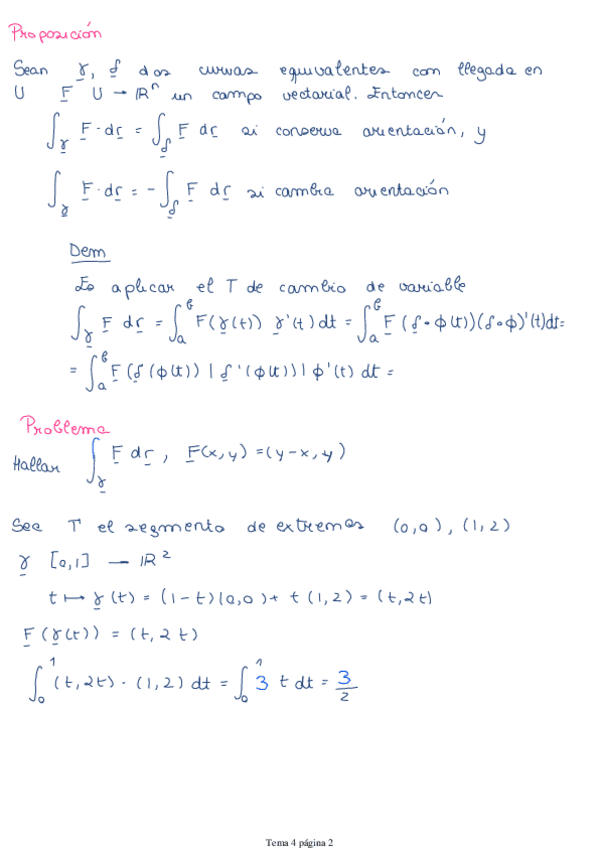 Proposición
Sean γ, δ dos curvas equivalentes con llegada en
U F U → ℝⁿ un campo vectorial. Entonces
∫_γ F · dr = ∫_δ F dr si conserva orientación, y
∫_γ F · dr = - ∫_δ F dr si cambia orientación
Dem
Es aplicar el T de cambio de variable
∫_γ F dr = ∫_a^b F(γ(t)) γ'(t) dt = ∫_a^b F (δ∘φ(t))(δ∘φ)'(t)dt=
= ∫_a^b F (δ(φ(t)) | δ'(φ(t))| φ'(t) dt =
Problema
Hallar ∫_γ F dr, F(x,y) =(y-x, y)
Sea T el segmento de extremos (0,0), (1,2)
γ [0,1] — ℝ²
t ↦ γ(t) = (1-t)(0,0)+ t(1,2) = (t,2t)
F(γ(t)) = (t, 2t)
∫_0^1 (t,2t) · (1,2) dt = ∫_0^1 3 t dt = 3/2
Tema 4 página 2